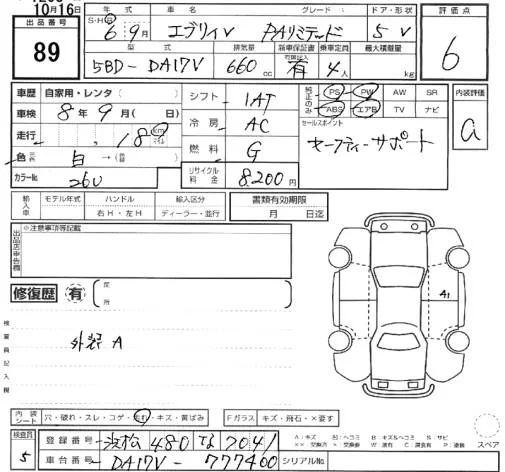 10月16日
出品番号
89
年式 車名 グレード ドア・形状
S・H・R 6年9月 エブリイV PAリミテッド 5 V
型式 排気量 新車保証書 乗車定員 最大積載量
5BD-DA17V 660cc 有 4人 kg
評価点
6
車歴 自家用・レンタ
車検 8年9月( 日)
走行 , 18 km マイル
色 元色 白 → (色替)
カラーNo. 26U
シフト IAT
冷房 AC
燃料 G
リサイクル料金 8,200円
純正のみ PS PW AW SR
ABS エアB TV ナビ
セールスポイント
セーフティーサポート
内装評価
a
輸入車 モデル年式 ハンドル 輸入区分
右H・左H ディーラー・並行
書類有効期限
月 日迄
出品店申告欄
※注意事項等記載
修復歴 有 箇所
検査員記入欄
外装 A
A1
内装シート 穴・破れ・スレ・コゲ・汚れ・キズ・黄ばみ
Fガラス キズ・飛石・×要す
検査員
5
登録番号 浜松 480 な 7041
車台番号 DA17V-777400
シリアルNo.
スペア